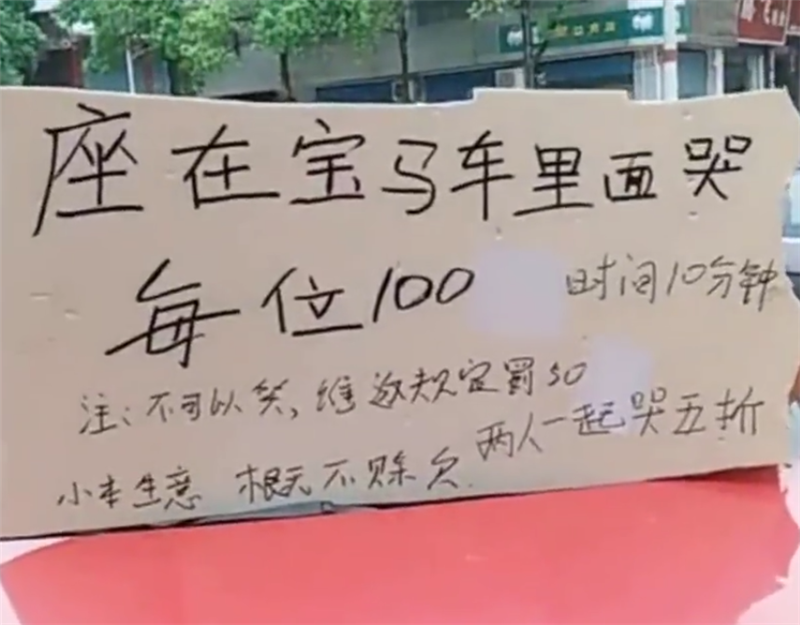 座在宝马车里面哭
每位100 时间10分钟
注:不可以笑,维返规定罚50
两人一起哭五折
小本生意 概不赊欠.